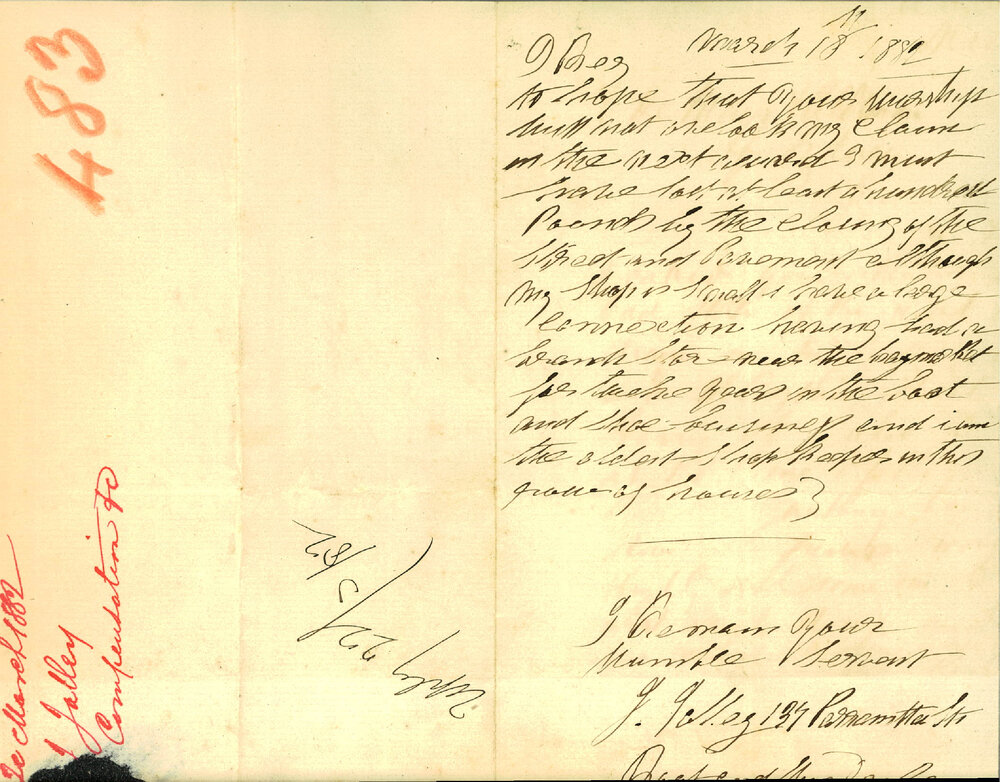 483
2c March 1882
J Jolley
Compensation &c
22/3/82
March 18th 1882
I Beg
to hope that your worship
will not ovelook my Claim
in the next award I must
have lost at least a hundred
Pounds by the Closing of the
Street and Pavement although
my Shop is small i have a large
Connection having had a
branch Store near the haymarket
for twelve years in the boot
and shoe business and i am
the oldest Shop Keeper in this
row of houses
I Remain your
Humble Servant
J. Jolley 137 Parramatta St